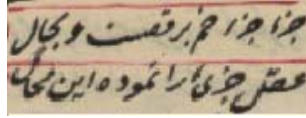 جزا جزا خم برقصت و بحال
عقل جزی را نموده این محال